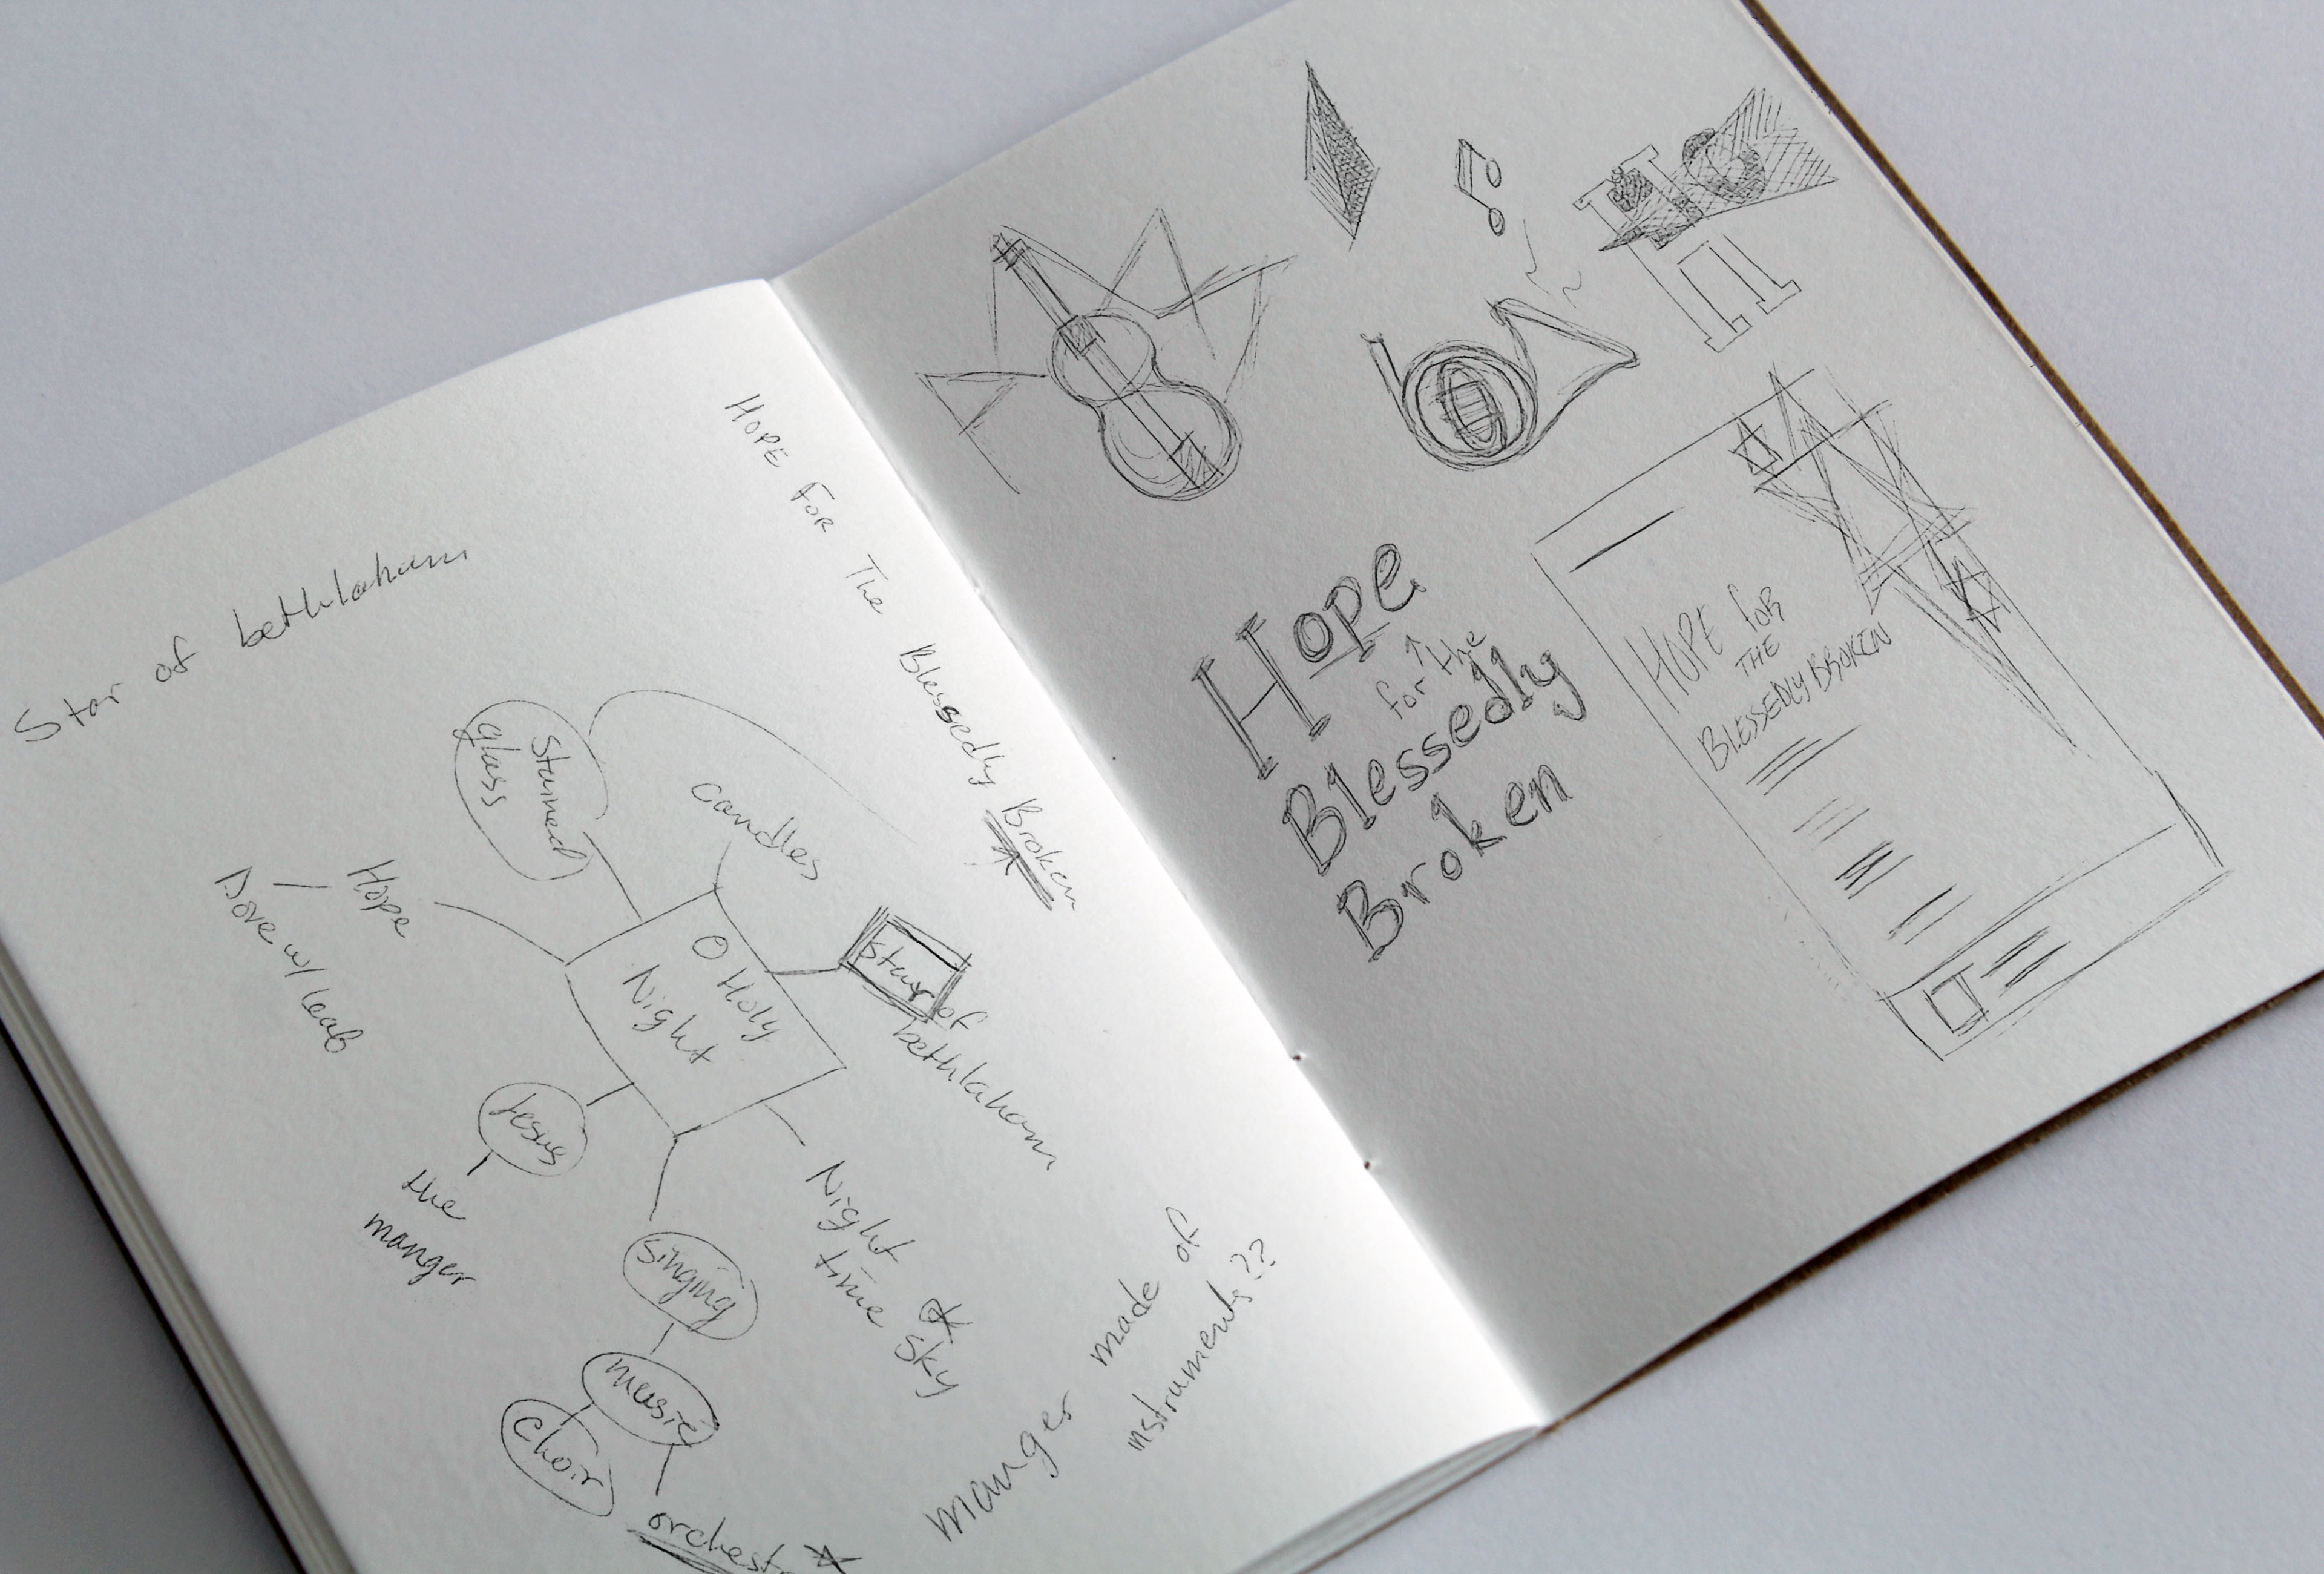 Star of bethlaham
HOPE FOR The Blessedly Broken
Stained
glass
candles
Hope
Dove w/ leaf
O Holy
Night
Star of
bethlaham
Jesus
the
manger
singing
music
choir
Night
time sky
manger made of
instruments??
HO
Hope
for the
Blessedly
Broken
HOPE for
THE
BLESSEDLY BROKEN